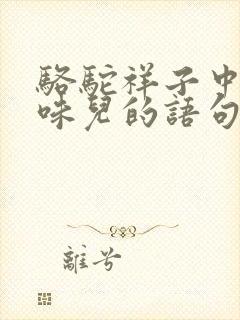 駱駝祥子中
味兒的語句
離兮